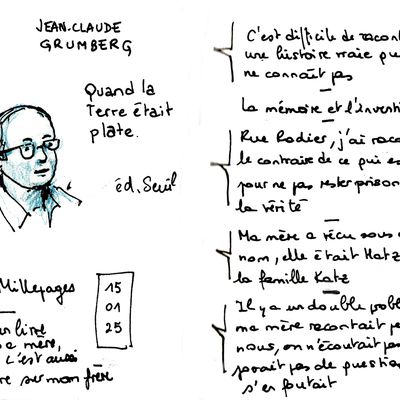 JEAN-CLAUDE
GRUMBERG
Quand la
Terre était
plate.
éd. Seuil
Millepages
15
01
25
un livre
ma mère,
c'est aussi
sur mon frère
C'est difficile de racont
une histoire vraie qu
ne connaît pas
La mémoire et l'inventi
Rue Rodier, j'ai raco
le contraire de ce qui es
pour ne pas rester prison
la vérité
Ma mère a vécu sous
nom, elle était Hatz
la famille Katz
Il y a un double pobl
ma mère racontait pe
nous, on n'écoutait pa
posait pas de question
s'en foutait